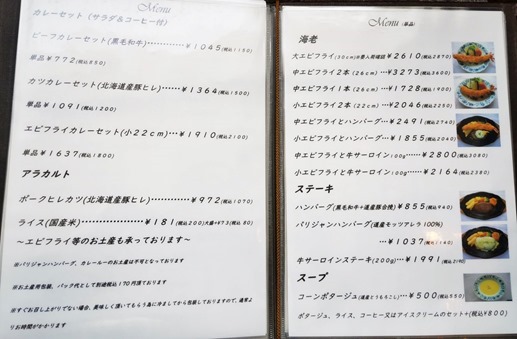 Menu
カレーセット（サラダ＆コーヒー付）
ビーフカレーセット(黒毛和牛)……¥1045(税込1150)
単品¥772(税込850)
カツカレーセット(北海道産豚ヒレ)……¥1364(税込1500)
単品¥1091(税込1200)
エビフライカレーセット(小22cm)…¥1910(税込2100)
単品¥1637(税込1800)
アラカルト
ポークヒレカツ(北海道産豚ヒレ)…………¥972(税込1070)
ライス(国産米)…………¥181(税込200)大盛+¥73(税込80)
～エビフライ等のお土産も承っております～
※パリジャンハンバーグ、カレールーのお土産は不可となっております
※お土産用包装、パック代として別途税込170円頂ております
※すぐお召し上がりでない場合、美味しく頂いてもらう為に冷ましてから包装しておりますので、通常よりお時間がかかります
Menu (単品)
海老
大エビフライ(30cm)※巻入荷確認 ¥2610(税込2870)
中エビフライ2本(26cm)…¥3273(税込3600)
中エビフライ1本(26cm)…¥1728(税込1900)
小エビフライ2本(22cm)…¥2046(税込2250)
中エビフライとハンバーグ…¥2491(税込2740)
小エビフライとハンバーグ…¥1855(税込2040)
中エビフライと牛サーロイン100g……¥2800(税込3080)
小エビフライと牛サーロイン100g……¥2164(税込2380)
ステーキ
ハンバーグ(黒毛和牛+道産豚合挽)…¥855(税込940)
パリジャンハンバーグ(道産モッツアレラ100%)
…¥1037(税込1140)
牛サーロインステーキ(200g)…¥1991(税込2190)
スープ
コーンポタージュ(道産とうもろこし)…¥500(税込550)
ポタージュ、ライス、コーヒー又はアイスクリームのセット+(税込¥800)